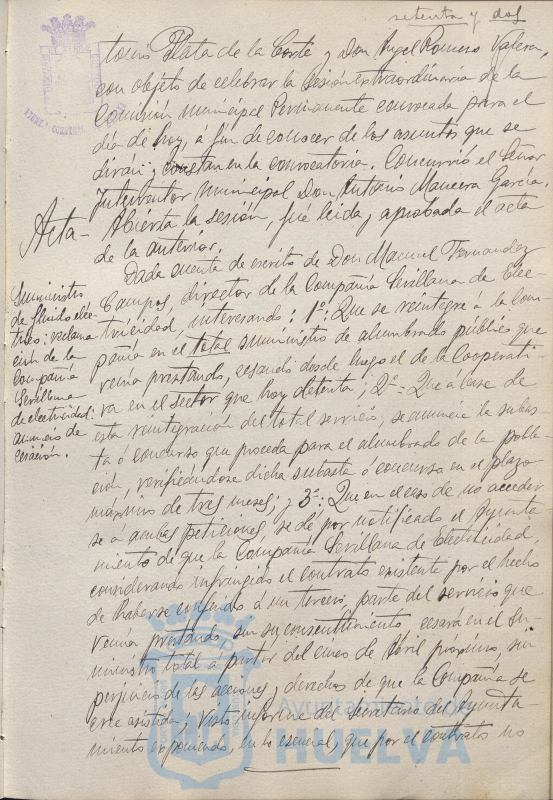 setenta y dos
torio Plata de la Corte y Don Angel Romero Valera,
con objeto de celebrar la sesion extraordinaria de la
Comisión Municipal Permanente convocada para el
dia de hoy, á fin de conocer de los asuntos que se
dirán y constan en la convocatoria. Concurrió el Señor
Interventor Municipal Don Antonio Macera García.
Acta - Abierta la sesión, fué leida y aprobada el acta
de la anterior.
Suministro
de fluido eléc-
trico: reclama
ción de la
Compañia
Sevillana
de electricidad:
anuncio de
cesación.
Dada cuenta de escrito de Don Manuel Fernandez
Campos, director de la Compañia Sevillana de Elec-
tricidad, interesando: 1º: Que se reintegre á la Com
pañia en el total suministro de alumbrado público que
venia prestando, cesando desde luego el de la Cooperati-
va en el sector que hoy detenta; 2º: Que á base de
esta reintegración del total servicio, se anuncie la subas-
ta ó concurso que proceda para el alumbrado de la pobla
ción, verificándose dicha subasta ó concurso en el plazo
máximo de tres meses; y 3º: Que en el caso de no acceder
se á ambas peticiones, se dé por notificado el Ayunta
miento de que la Compañia Sevillana de Electricidad,
considerando infringido el contrato existente por el hecho
de haberse confiado á un tercero parte del servicio que
venia prestando sin su consentimiento cesará en el su-
ministro total a partir del cinco de Abril próximo, sin
perjuicio de las acciones y derechos de que la Compañia se
cree asistida; y visto informe del Secretario del Ayunta-
miento exponiendo, en lo esencial, que por el contrato no
Ayuntamiento de
HUELVA